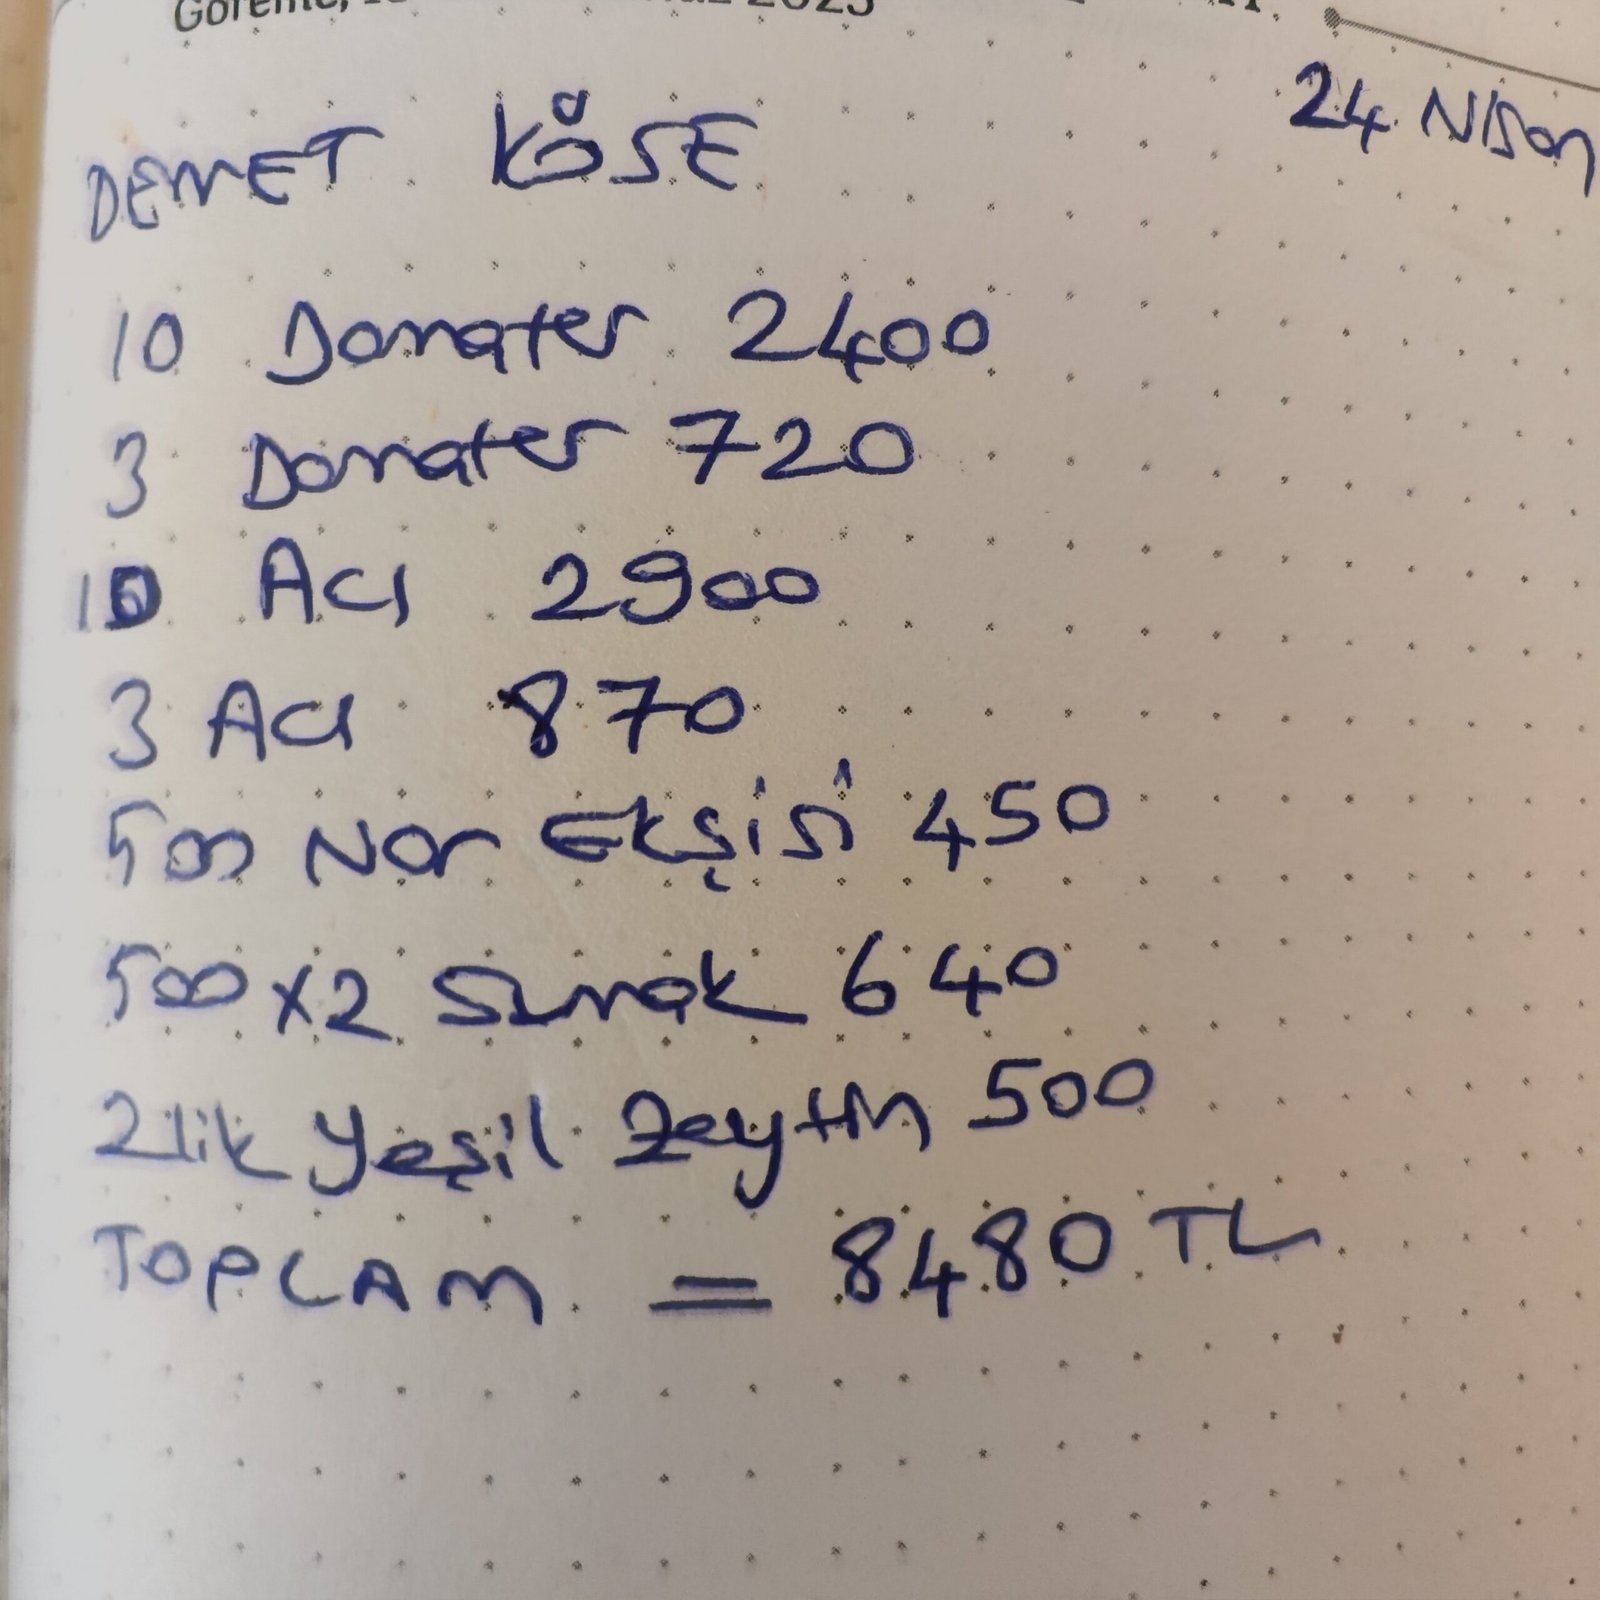 Göreme,
2023
24 Nisan
DEMET KÖSE
10 Domates 2400
3 Domates 720
10 ACI 2900
3 ACI 870
500 Nar Ekşisi 450
500 x2 Sumak 640
2lik Yeşil Zeytin 500
TOPLAM = 8480 TL